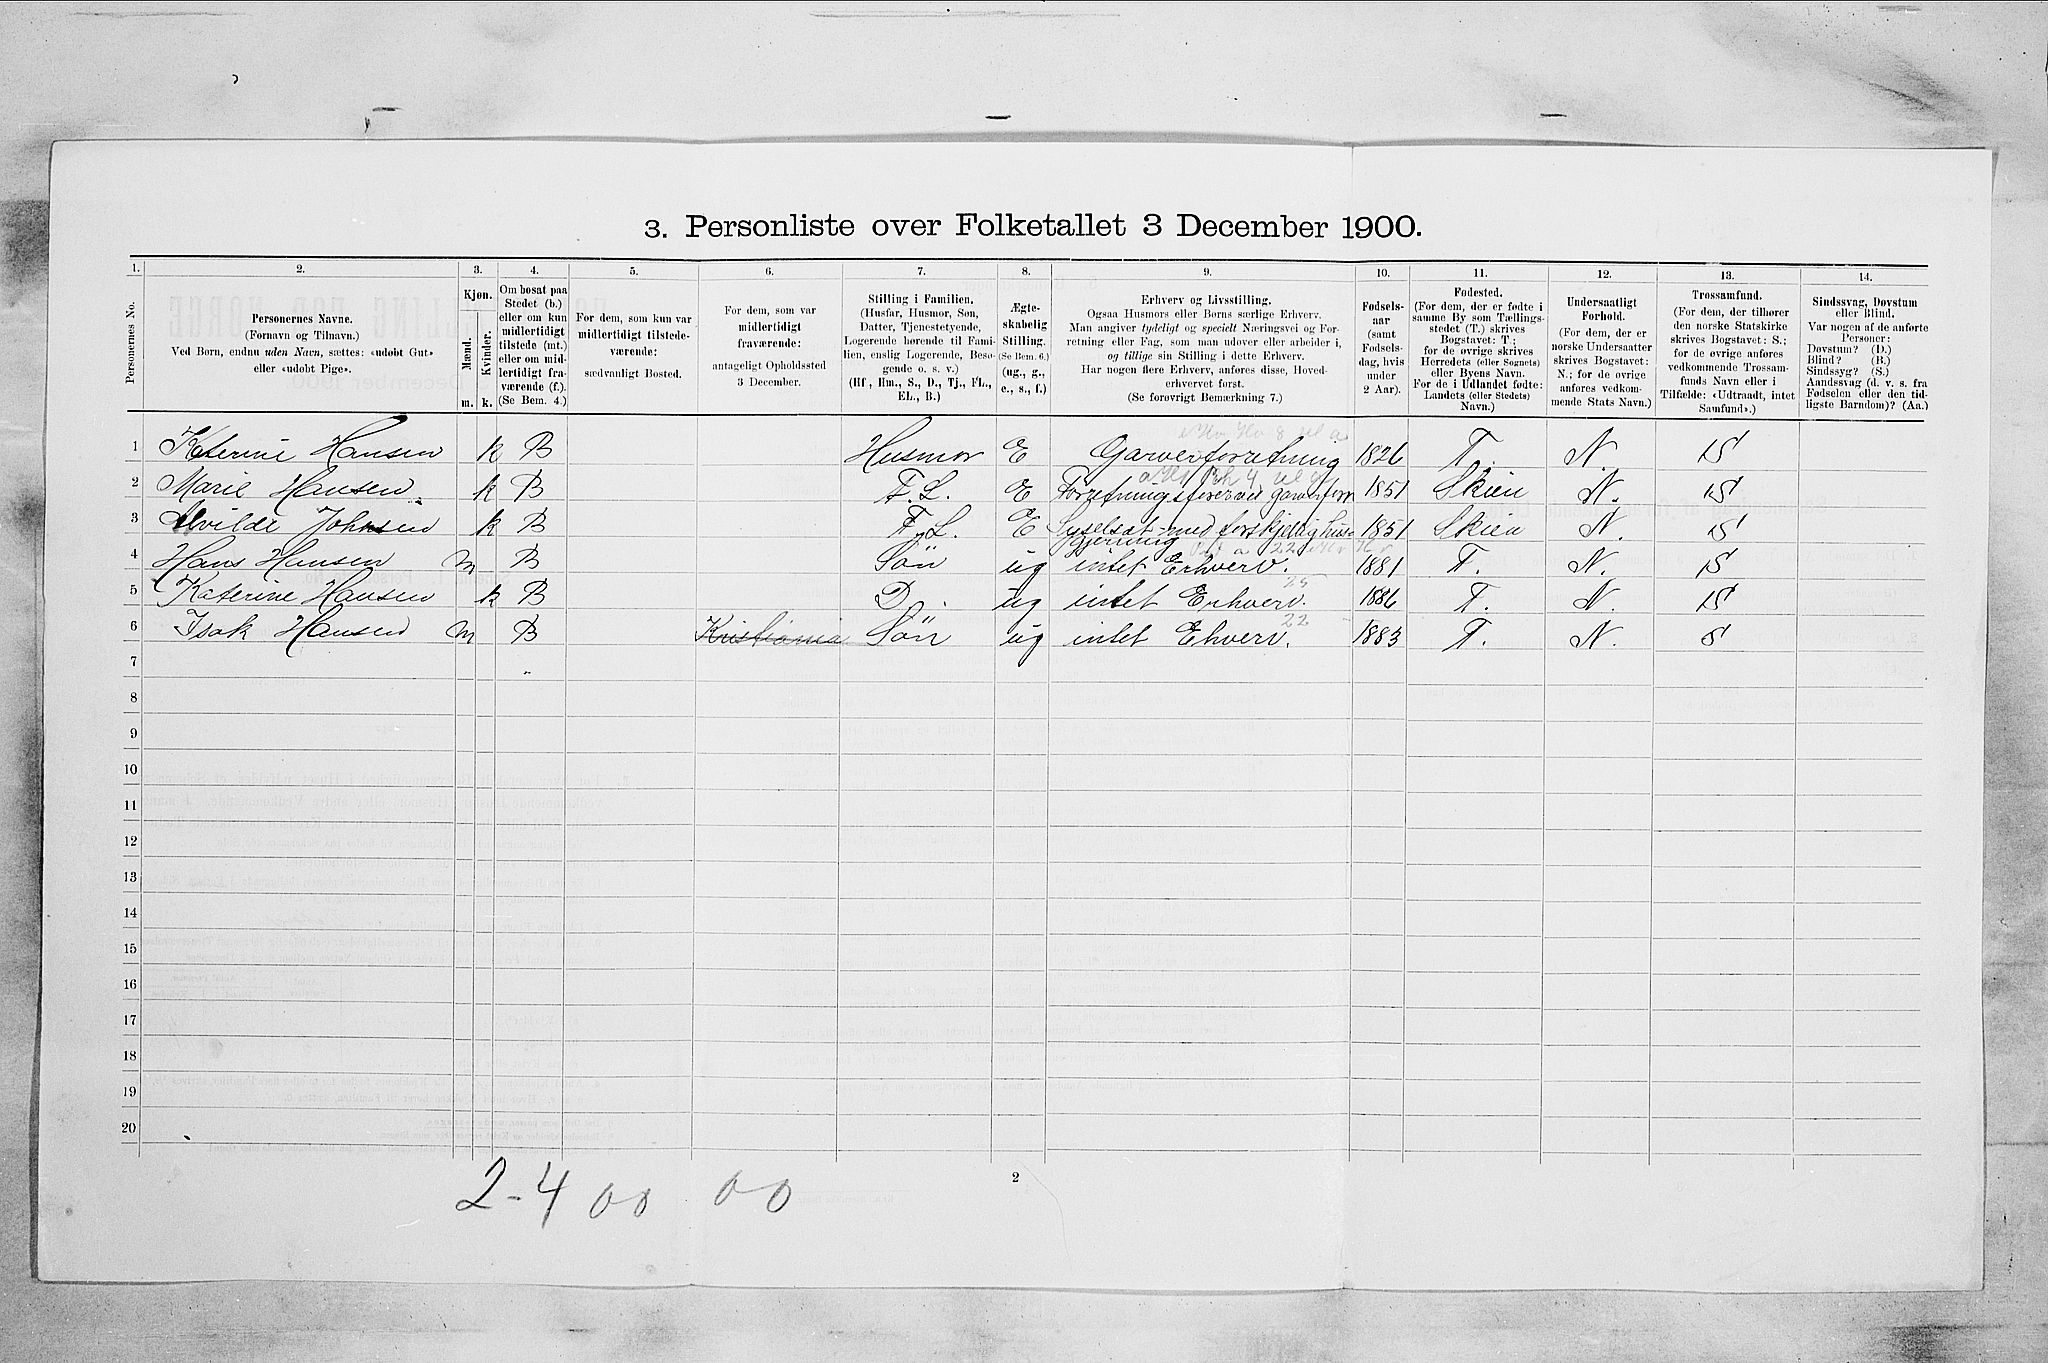 3. Personliste over Folketallet 3 December 1900.
1. 2. 3. 4. 5. 6. 7. 8. 9. 10. 11. 12. 13. 14.
Personernes No.
Personernes Navne.
(Fornavn og Tilnavn.)
Ved Børn, endnu uden Navn, sættes: «udøbt Gut»
eller «udøbt Pige».
Kjøn.
Mænd.
Kvinder.
m. k.
Om bosat paa
Stedet (b.)
eller om kun
midlertidigt
tilstede (mt.)
eller om mid-
lertidigt fra-
værende (f.).
(Se Bem. 4.)
For dem, som kun var
midlertidigt tilstede-
værende:
sædvanligt Bosted.
For dem, som var
midlertidigt
fraværende:
antageligt Opholdssted
3 December.
Stilling i Familien.
(Husfar, Husmor, Søn,
Datter, Tjenestetyende,
Logerende hørende til Fami-
lien, enslig Logerende, Besø-
gende o. s. v.)
(Hf., Hm., S., D., Tj., FL.,
EL., B.)
Ægte-
skabelig
Stilling.
(Se Bem. 6.)
(ug., g.,
e., s., f.)
Erhverv og Livsstilling.
Ogsaa Husmors eller Børns særlige Erhverv.
Man angiver tydeligt og specielt Næringsvei og For-
retning eller Fag, som man udøver eller arbeider i,
og tillige sin Stilling i dette Erhverv.
Har nogen flere Erhverv, anføres disse, Hoved-
erhvervet først.
(Se forøvrigt Bemærkning 7.)
Fødsels-
aar
(samt
Fødsels-
dag, hvis
under
2 Aar).
Fødested.
(For dem, der er fødte i
samme By som Tællings-
stedet (T.) skrives
Bogstavet: T.;
for de øvrige skrives
Herredets (eller Sognets)
eller Byens Navn.
For de i Udlandet fødte:
Landets (eller Stedets)
Navn.)
Undersaatligt
Forhold.
(For dem, der er
norske Undersaatter
skrives Bogstavet:
N.; for de øvrige
anføres vedkom-
mende Stats Navn.)
Trossamfund.
(For dem, der tilhører
den norske Statskirke
skrives Bogstavet: S.;
for de øvrige anføres
vedkommende Trossam-
funds Navn eller i
Tilfælde: «Udtraadt, intet
Samfund».)
Sindssvag, Døvstum
eller Blind.
Var nogen af de anførte
Personer:
Døvstum? (D.)
Blind? (B.)
Sindssyg? (S.)
Aandssvag (d. v. s. fra
Fødselen eller den tid-
ligste Barndom)? (Aa.)
1 Katerine Hansen k B Husmor E Garverforretning 1826 T. N. S
2 Marie Hansen k B F.L. E Forretningsfører 1851 Skien N. S
3 Alvilde Johnsen k B F.L. E Sysselsat med forskjellig hus- 1851 Skien N. S
gjerning
4 Hans Hansen m B Søn ug intet Erhverv. 1881 T. N. S
5 Katerine Hansen k B D. ug intet Erhverv. 1886 T. N. S
6 Isak Hansen m B Kristiania Søn ug intet Ehverv. 1883 T. N. S
7
8
9
10
11
12
13
14
15
16
17
18
19
20
2-4 00 00
2